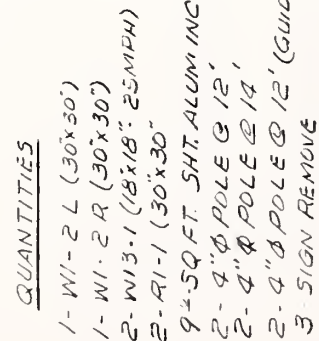 QUANTITIES
1- W1-2 L (30"x30")
1- W1-2 R (30"x30")
2- W13-1 (18"x18"- 25MPH)
2- R1-1 (30"x30"
SQ FT. SHT. ALUMINC
2- 4"Φ POLE @ 12'
2- 4"Φ POLE @ 14'
2- 4"Φ POLE @ 12' (GUID
3 SIGN REMOVE